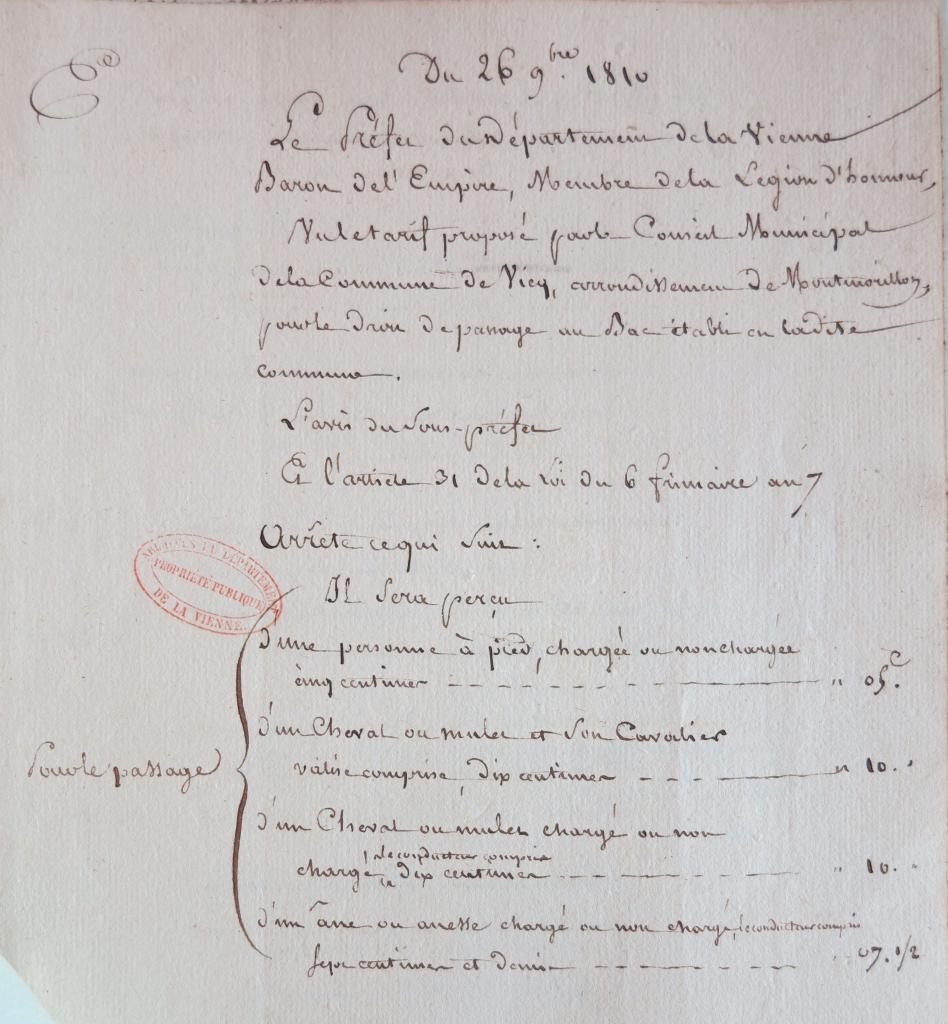 Du 26 9bre. 1810
Le Préfet du Département de la Vienne
Baron de l'Empire, Membre de la Légion d'honneur,
Vu le tarif proposé par le Conseil Municipal
de la Commune de Vicq, arrondissement de Montmorillon,
pour le droit de passage au Bac établi en ladite
commune.
L'avis du Sous-préfet
Et l'article 31 de la Loi du 6 frimaire an 7
Arrête ce qui suit :
Il sera perçu
ARCHIVES DU DÉPARTEMENT
PROPRIÉTÉ PUBLIQUE
DE LA VIENNE
Pour le passage
d'une personne à pied, chargée ou non chargée
cinq centimes " 05.c
d'un Cheval ou mulet et son Cavalier
valise comprise, dix centimes " 10. "
d'un Cheval ou mulet chargé ou non
chargé, le conducteur compris dix centimes " 10. "
d'un âne ou anesse chargé ou non chargé, le conducteur compris
sept centimes et demi 07. 1/2